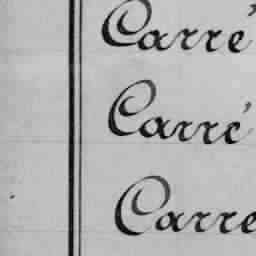 Carré
Carré
Carre